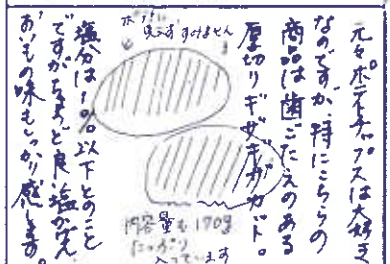 元々ポテイチップスは大好き
なのですが、特にこちらの
商品は歯ごたえのある
厚切りギザギザカット。
すみません
内容量も170g
たっぷり
入っています
塩分は1%以下とのこと
ですがちょうど良い塩かげん
おいもの味もしっかり感じます。